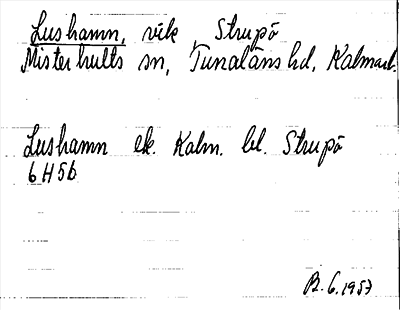 Lushamn, vik, Strupö
Misterhults sn, Tunaläns hd, Kalmarl.
Lushamn ek. Kalm. bl. Strupö
6H5b
B. 6.1957